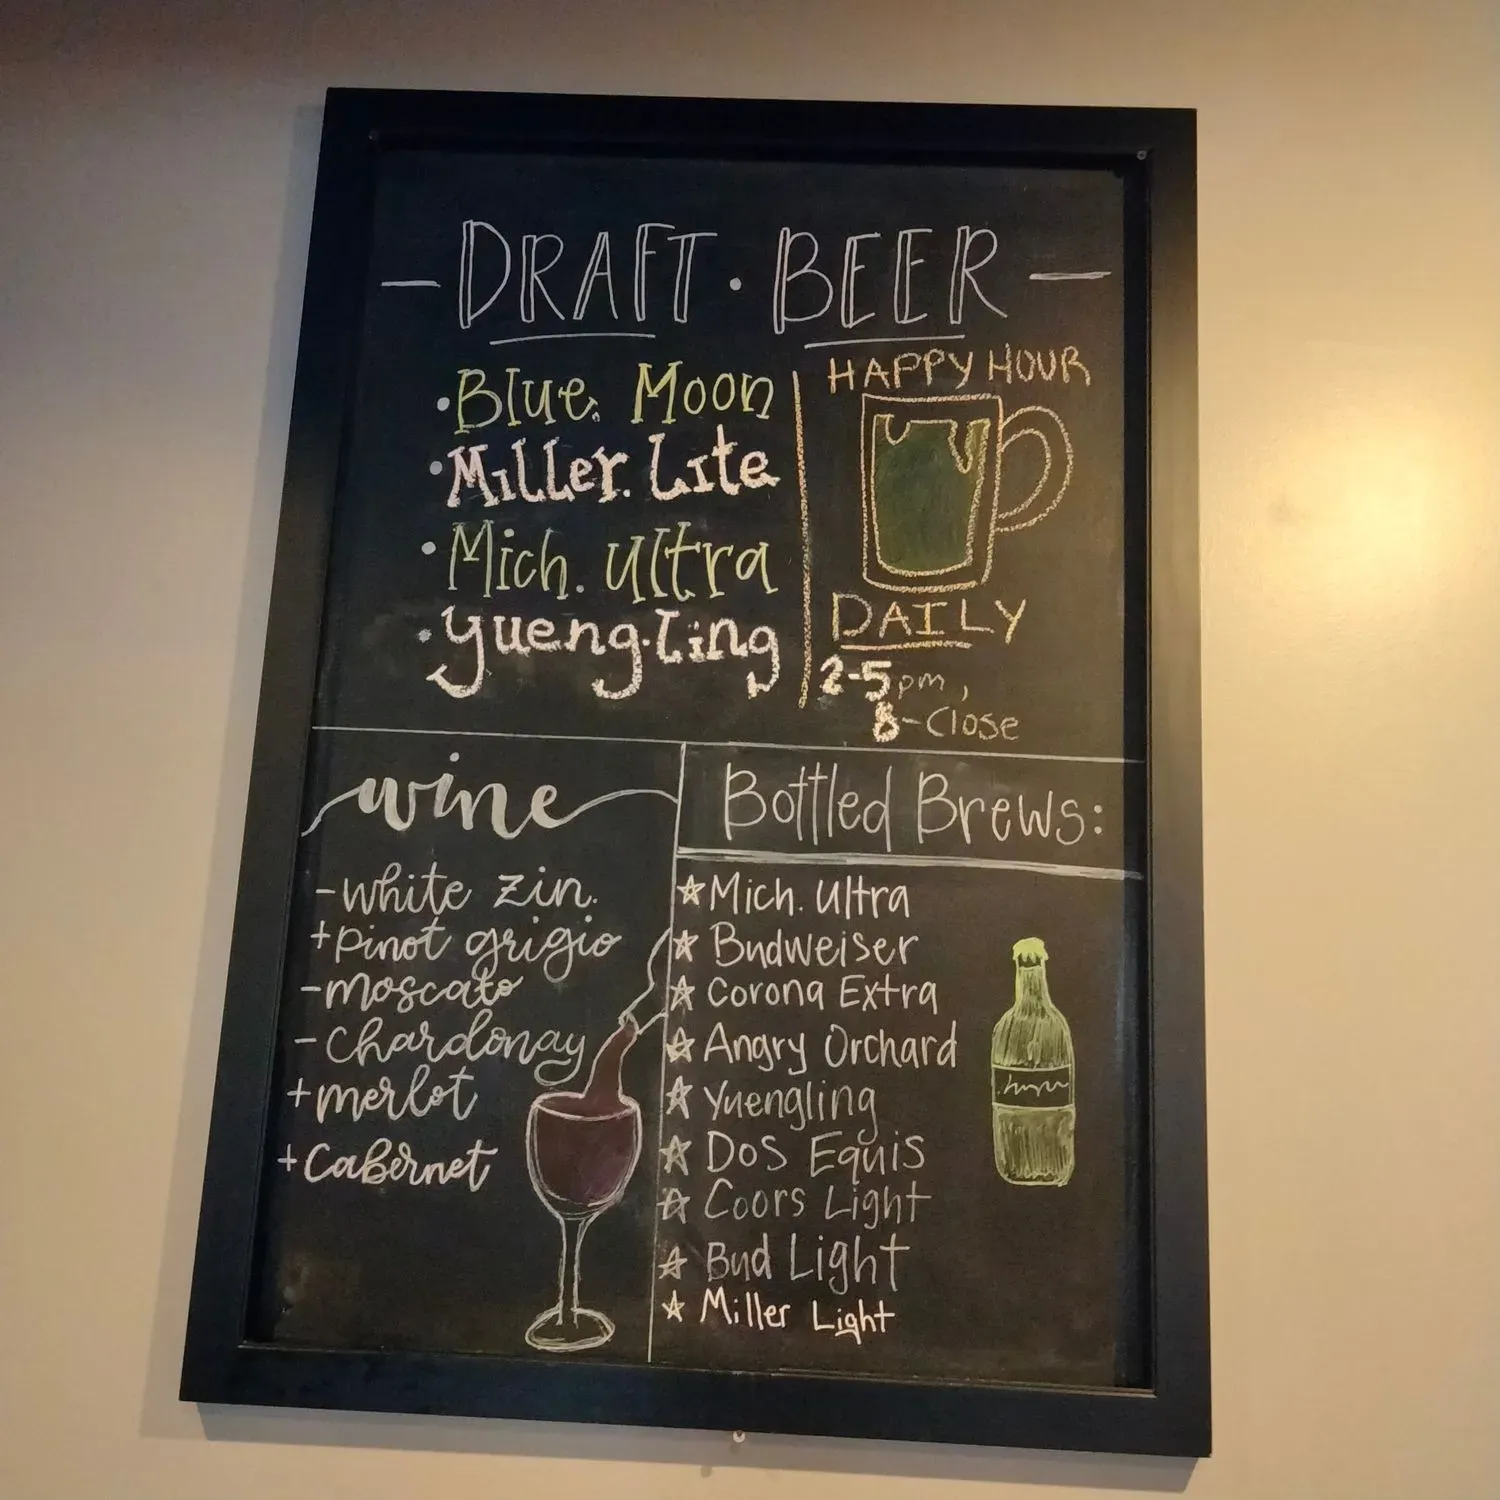 — DRAFT · BEER —
• Blue Moon
• Miller Lite
• Mich. Ultra
• Yueng·Ling
HAPPY HOUR
DAILY
2-5pm,
8-Close
wine
- white zin.
+ pinot grigio
- moscato
- chardonay
+ merlot
+ cabernet
Bottled Brews:
☆ Mich. Ultra
☆ Budweiser
☆ Corona Extra
☆ Angry Orchard
☆ Yuengling
☆ Dos Equis
☆ Coors Light
☆ Bud Light
☆ Miller Light